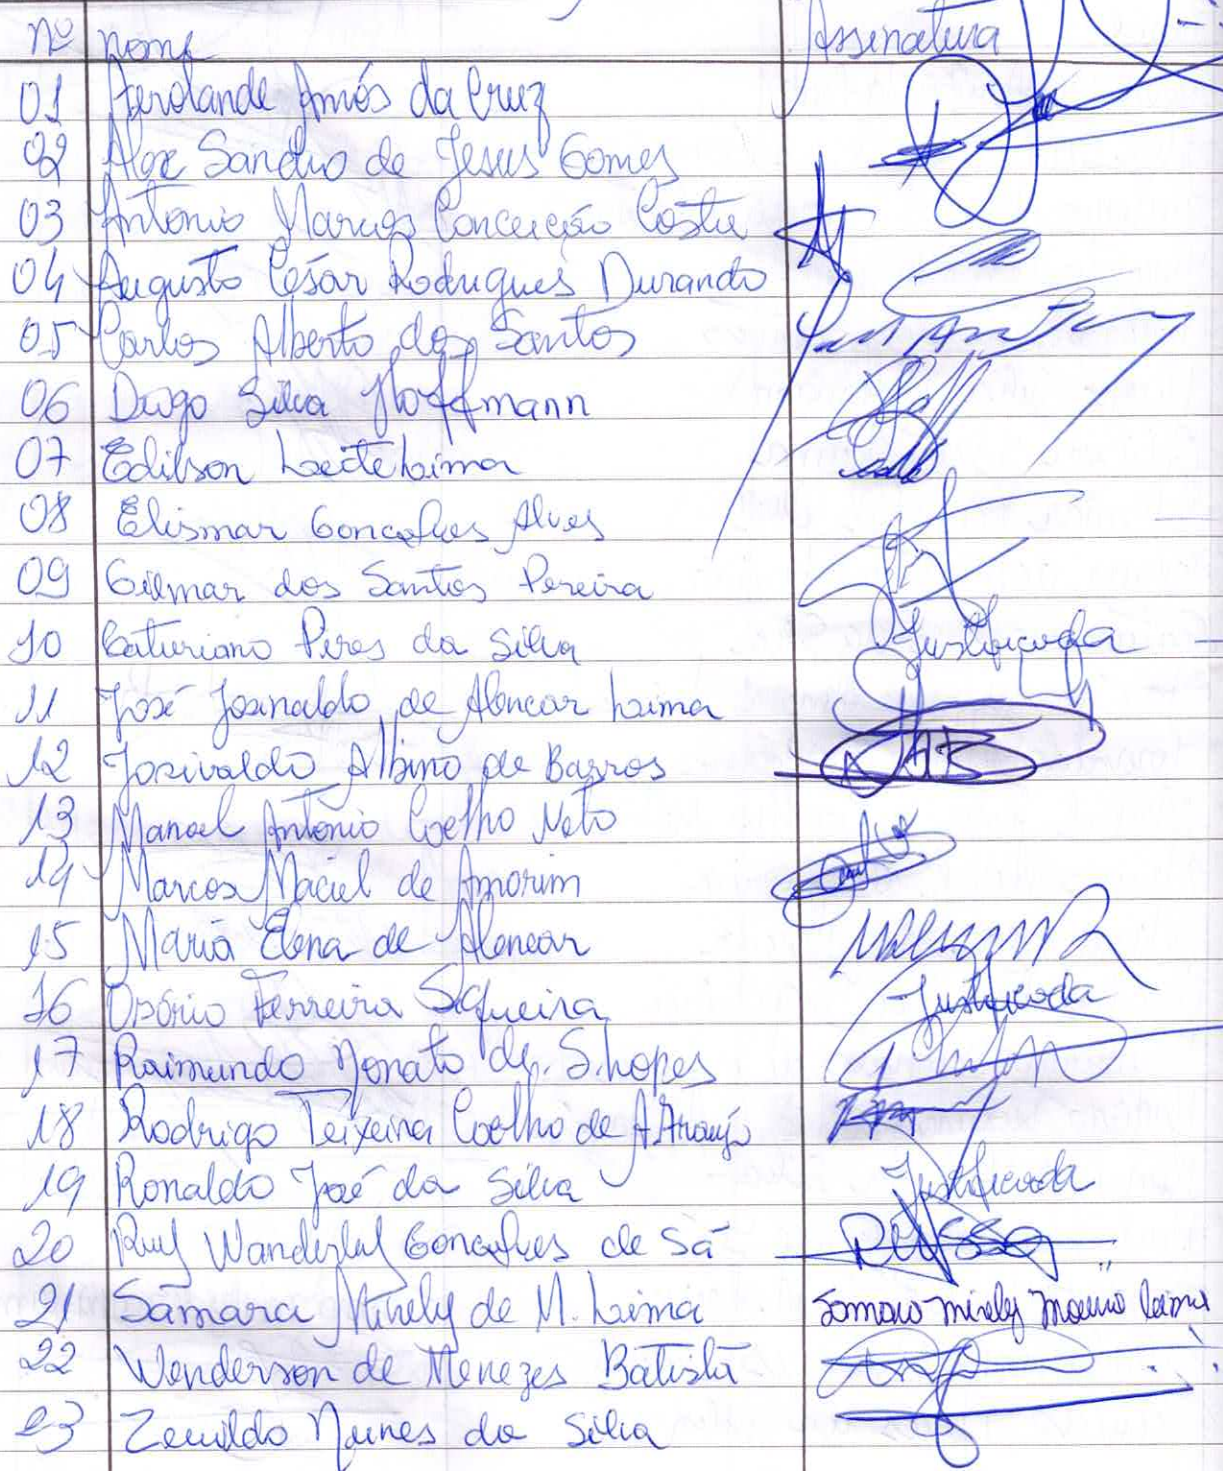 Nº Nome Assinatura
01 Aerolande Amós da Cruz
02 Alex Sandro de Jesus Gomes
03 Antonio Marcos Conceição Costa
04 Augusto César Rodrigues Durando
05 Carlos Alberto dos Santos
06 Diogo Silva Hoffmann
07 Edilson Leite Lima
08 Elismar Gonçalves Alves
09 Gilmar dos Santos Pereira
10 Gaturiano Pires da Silva Justificada
11 José Josinaldo de Alencar Lima
12 Josivaldo Albino de Barros
13 Manoel Antônio Coelho Neto
14 Marcos Maciel de Amorim
15 Maria Elena de Alencar
16 Osório Ferreira Siqueira Justificada
17 Raimundo Nonato de S. Lopes
18 Rodrigo Teixeira Coelho de A. Araujo
19 Ronaldo José da Silva Justificada
20 Ruy Wanderley Gonçalves de Sá
21 Samara Mirely de M. Lima Samara Mirely Lima
22 Wenderson de Menezes Batista
23 Zenildo Nunes da Silva